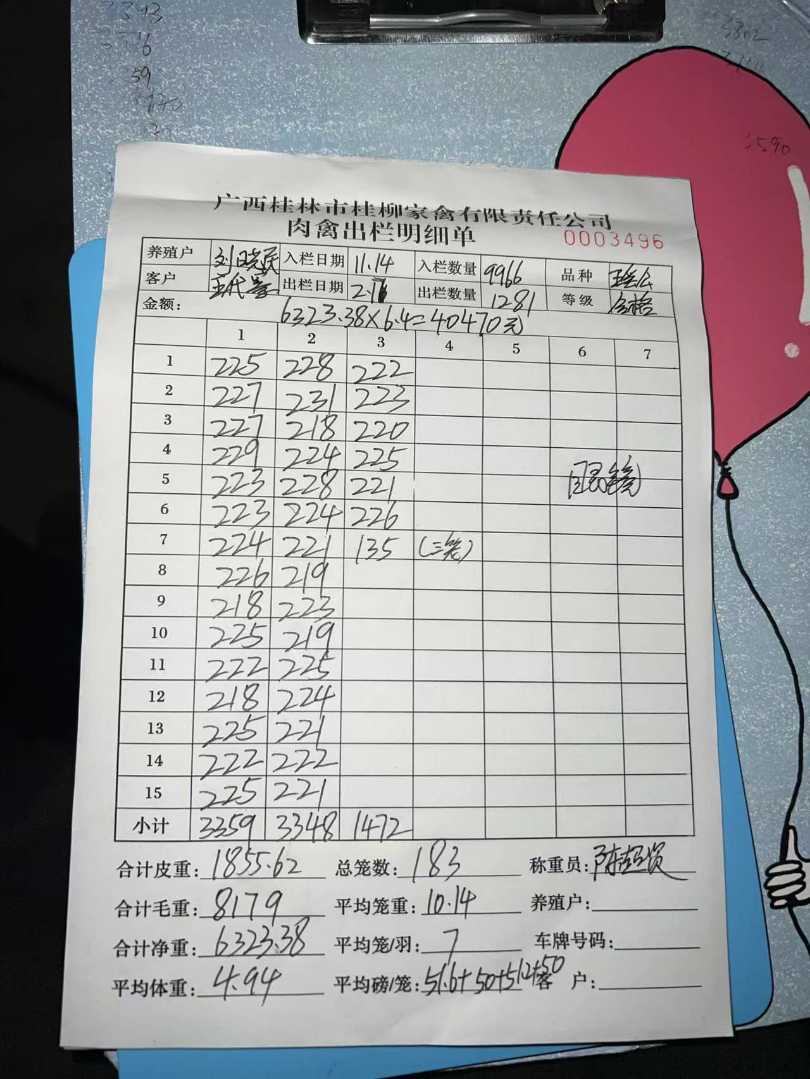 广西桂林市桂柳家禽有限责任公司
肉禽出栏明细单
0003496
养殖户 刘晓民 入栏日期 11.14 入栏数量 9966 品种
客户 出栏日期 2.16 出栏数量 1281 等级 合格
金额: 6323.38×6.4=40470元
1 2 3 4 5 6 7
1 225 228 222
2 227 231 223
3 227 218 220
4 229 224 225
5 223 228 221
6 223 224 226
7 224 221 135 (三笼)
8 226 219
9 218 223
10 225 219
11 222 225
12 218 224
13 225 221
14 222 222
15 225 221
小计 3359 3348 1472
合计皮重: 1855.62 总笼数: 183 称重员: 陈
合计毛重: 8179 平均笼重: 10.14 养殖户:
合计净重: 6323.38 平均笼/羽: 7 车牌号码:
平均体重: 4.94 平均磅/笼: 51.6+50+51.2+50 客 户: